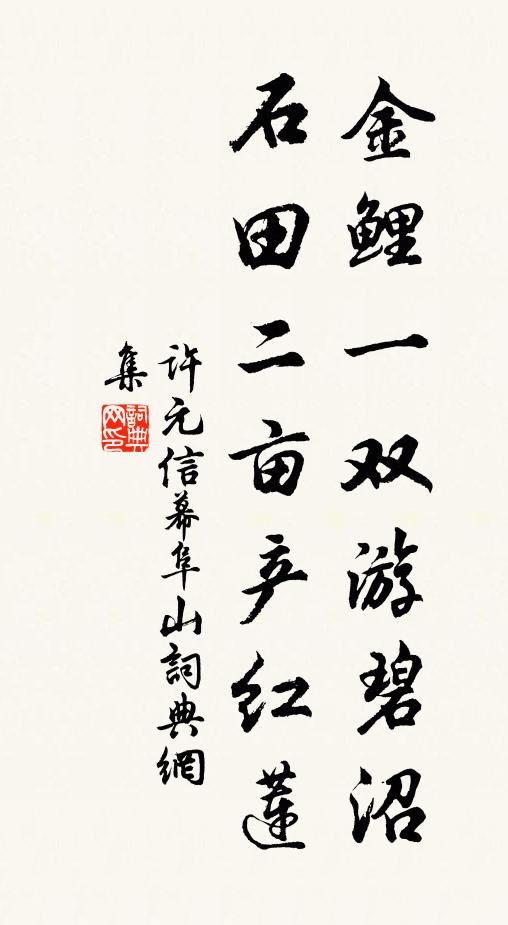 金鲤一双游碧沼
石田二亩产红莲
许元信幕阜山詞典網
集
詞典网印